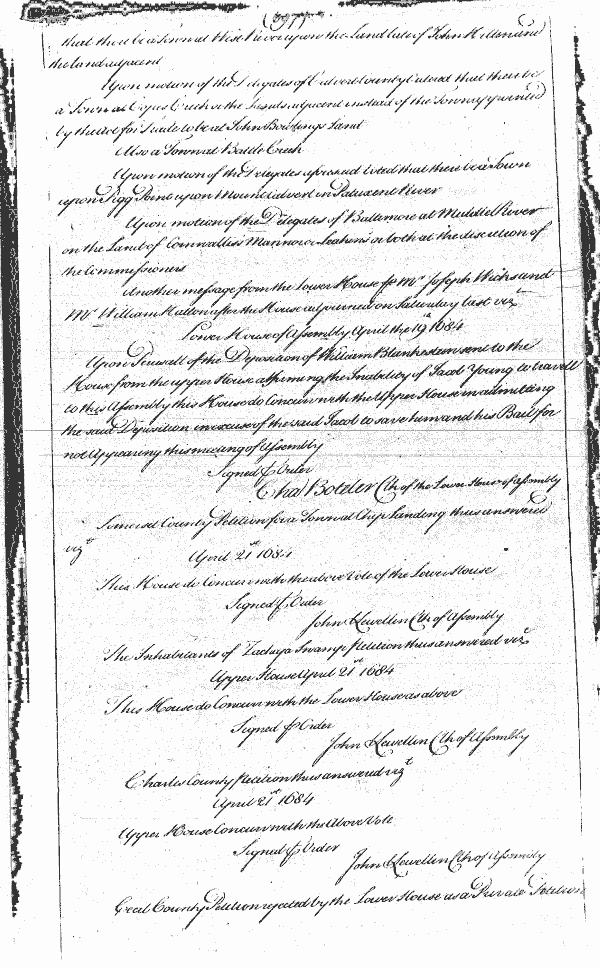 (397)
that there be a Town at West River upon the Land late of John Hillen and
the Land adjacent
Upon motion of the Delegates of Calvert County Voted that there be
a Town at Creek or the Lands adjacent instead of the Town appointed
by the Act for Trade to be at John Bowlings Land
Also a Town at Battle Creek
Upon motion of the Delegates aforesaid Voted that there be a Town
upon Pigg Point upon Mount Calvert in Patuxent River
Upon motion of the Delegates of Baltimore at Middle River
on the Land of Cornwallis's Mannor or Leakins or both at the discretion of
the Commissioners
Another message from the Lower House p Mr Joseph Wicks and
Mr William Hatton after the House adjourned on Saturday last vizt
Lower House of Assembly April the 19th 1684
Upon Perusall of the Deposition of William Blankenstein sent to the
House from the upper House affirming the Inability of Jacob Young to travell
to this Assembly this House do Concur with the Upper House in admitting
the said Deposition in excuse of the said Jacob to save him and his Bail for
not Appearing this meeting of Assembly
Signed p Order
Elias Boteler Clk of the Lower House of Assembly
Somerset County Petition for a Town at Chip Landing thus answered
vizt
April 21st 1684
This House do Concur with the above Vote of the Lower House
Signed p Order
John Llewellin Clk of Assembly
The Inhabitants of Zachya Swamp petition thus answered vizt
Upper House April 21st 1684
This House do Concur with the Lower House as above
Signed p Order
John Llewellin Clk of Assembly
Charles County petition thus answered vizt
April 21st 1684
Upper House Concur with the Above Vote
Signed p Order
John Llewellin Clk of Assembly
Cecil County Petition rejected by the Lower House as a Private Petition